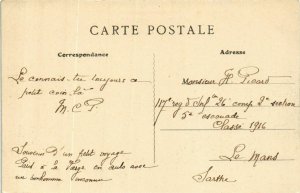 CARTE POSTALE
Correspondance
Adresse
Le connais-tu toujours ce
petit coin là
M. C. P.
Monsieur A Picard
117e reg d'Inf 26 comp 2e section
5e escouade
Classe 1916
Le Mans
Sarthe
Souvenir d'un petit voyage
Paris à la Varge en auto avec
un bonhomme inconnu